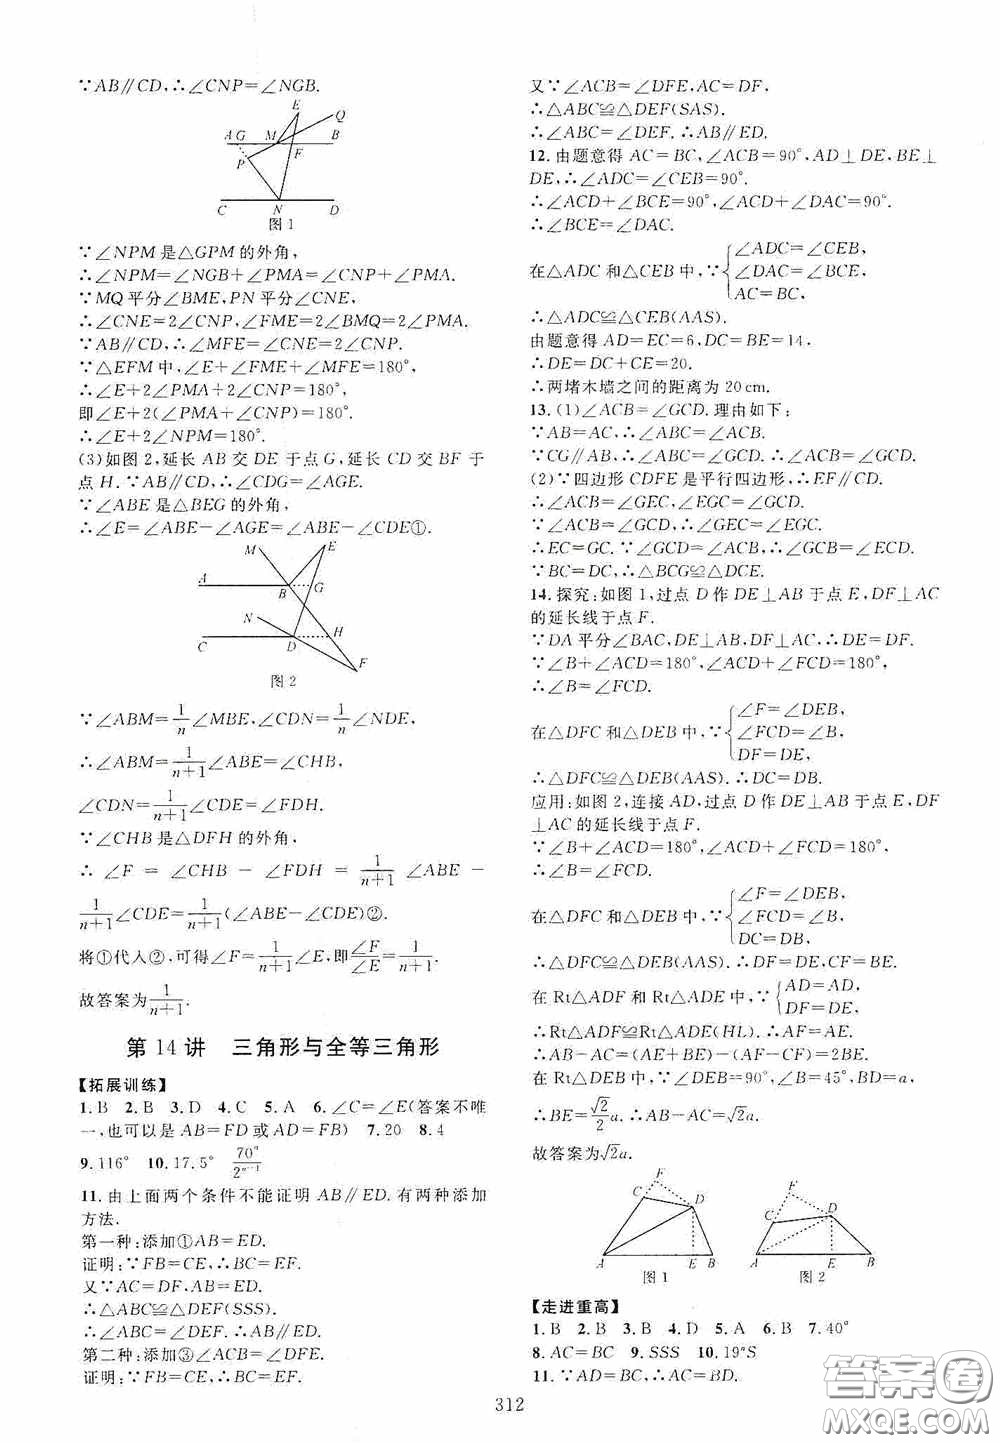 ∵AB∥CD,∴∠CNP=∠NGB.
E
Q
A G M B
P F
C N D
图1
∵∠NPM是△GPM的外角,
∴∠NPM=∠NGB+∠PMA=∠CNP+∠PMA.
∵MQ平分∠BME,PN平分∠CNE,
∴∠CNE=2∠CNP,∠FME=2∠BMQ=2∠PMA.
∵AB∥CD,∴∠MFE=∠CNE=2∠CNP.
∵△EFM中,∠E+∠FME+∠MFE=180°,
∴∠E+2∠PMA+2∠CNP=180°,
即∠E+2(∠PMA+∠CNP)=180°.
∴∠E+2∠NPM=180°.
(3)如图2,延长AB交DE于点G,延长CD交BF于
点H.∵AB∥CD,∴∠CDG=∠AGE.
∵∠ABE是△BEG的外角,
∴∠E=∠ABE-∠AGE=∠ABE-∠CDE①.
M E
A B G
N
C D H
F
图2
∵∠ABM=1/n∠MBE,∠CDN=1/n∠NDE,
∴∠ABM=1/(n+1)∠ABE=∠CHB,
∠CDN=1/(n+1)∠CDE=∠FDH.
∵∠CHB是△DFH的外角,
∴∠F=∠CHB-∠FDH=1/(n+1)∠ABE-
1/(n+1)∠CDE=1/(n+1)(∠ABE-∠CDE)②.
将①代入②,可得∠F=1/(n+1)∠E,即∠F/∠E=1/(n+1).
故答案为1/(n+1).
第14讲 三角形与全等三角形
【拓展训练】
1.B 2.B 3.D 4.C 5.A 6.∠C=∠E(答案不唯
一,也可以是AB=FD或AD=FB) 7.20 8.4
9.116° 10.17.5° 70°/2ⁿ⁻¹
11.由上面两个条件不能证明AB∥ED.有两种添加
方法.
第一种:添加①AB=ED.
证明:∵FB=CE,∴BC=EF.
又∵AC=DF,AB=ED,
∴△ABC≌△DEF(SSS).
∴∠ABC=∠DEF.∴AB∥ED.
第二种:添加③∠ACB=∠DFE.
证明:∵FB=CE,∴BC=EF.
又∵∠ACB=∠DFE,AC=DF,
∴△ABC≌△DEF(SAS).
∴∠ABC=∠DEF.∴AB∥ED.
12.由题意得AC=BC,∠ACB=90°,AD⊥DE,BE⊥
DE,∴∠ADC=∠CEB=90°.
∴∠ACD+∠BCE=90°,∠ACD+∠DAC=90°.
∴∠BCE=∠DAC.
在△ADC和△CEB中,∵{∠ADC=∠CEB,
∠DAC=∠BCE,
AC=BC,
∴△ADC≌△CEB(AAS).
由题意得AD=EC=6,DC=BE=14,
∴DE=DC+CE=20.
∴两堵木墙之间的距离为20cm.
13.(1)∠ACB=∠GCD.理由如下:
∵AB=AC,∴∠ABC=∠ACB.
∵CG∥AB,∴∠ABC=∠GCD.∴∠ACB=∠GCD.
(2)∵四边形CDFE是平行四边形,∴EF∥CD.
∴∠ACB=∠GEC,∠EGC=∠GCD.
∵∠ACB=∠GCD,∴∠GEC=∠EGC.
∴EC=GC.∵∠GCD=∠ACB,∴∠GCB=∠ECD.
∵BC=DC,∴△BCG≌△DCE.
14.探究:如图1,过点D作DE⊥AB于点E,DF⊥AC
的延长线于点F.
∵DA平分∠BAC,DE⊥AB,DF⊥AC,∴DE=DF.
∵∠B+∠ACD=180°,∠ACD+∠FCD=180°,
∴∠B=∠FCD.
在△DFC和△DEB中,∵{∠F=∠DEB,
∠FCD=∠B,
DF=DE,
∴△DFC≌△DEB(AAS).∴DC=DB.
应用:如图2,连接AD,过点D作DE⊥AB于点E,DF
⊥AC的延长线于点F.
∵∠B+∠ACD=180°,∠ACD+∠FCD=180°,
∴∠B=∠FCD.
在△DFC和△DEB中,∵{∠F=∠DEB,
∠FCD=∠B,
DC=DB,
∴△DFC≌△DEB(AAS).∴DF=DE,CF=BE.
在Rt△ADF和Rt△ADE中,∵{AD=AD,
DF=DE,
∴Rt△ADF≌Rt△ADE(HL).∴AF=AE.
∴AB-AC=(AE+BE)-(AF-CF)=2BE.
在Rt△DEB中,∵∠DEB=90°,∠B=45°,BD=a,
∴BE=√2/2a.∴AB-AC=√2a.
故答案为√2a.
F
C D
A E B
图1
F
C D
A E B
图2
【走进重高】
1.B 2.B 3.B 4.D 5.A 6.B 7.40°
8.AC=BC 9.SSS 10.19°S
11.∵AD=BC,∴AC=BD.
312
答案圈
MXQE.COM